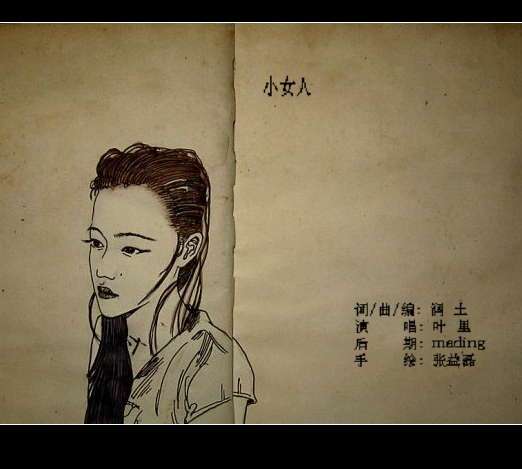 小女人
词/曲/编: 润 土
演 唱: 叶 里
后 期: mading
手 绘: 张益